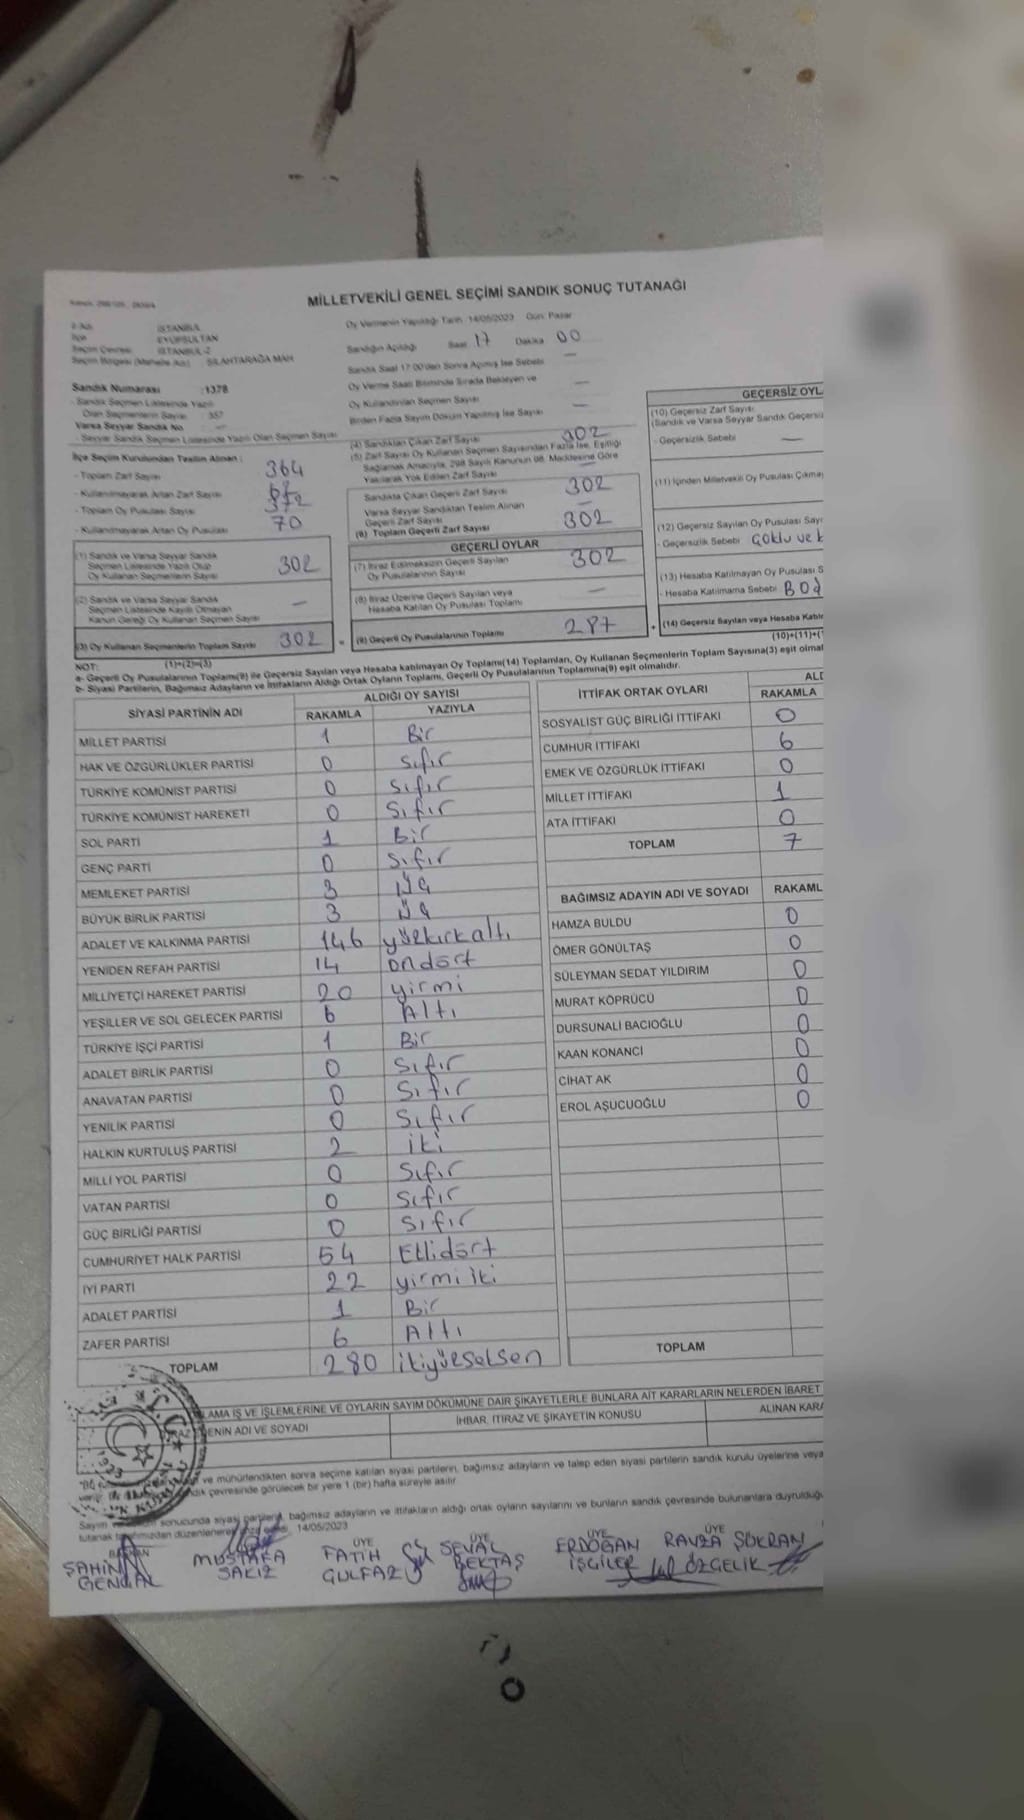 MİLLETVEKİLİ GENEL SEÇİMİ SANDIK SONUÇ TUTANAĞI
İli Adı : İSTANBUL
İlçe : EYÜPSULTAN
Seçim Çevresi : İSTANBUL-2
Seçim Bölgesi (Mahalle Adı) : SİLAHTARAĞA MAH
Sandık Numarası : 1378
- Sandık Seçmen Listesinde Yazılı
Olan Seçmenlerin Sayısı : 357
Varsa Seyyar Sandık No —
- Seyyar Sandık Seçmen Listesinde Yazılı Olan Seçmen Sayısı
İlçe Seçim Kurulundan Teslim Alınan :
- Toplam Zarf Sayısı 364
- Kullanılmayarak Artan Zarf Sayısı
- Toplam Oy Pusulası Sayısı 372
- Kullanılmayarak Artan Oy Pusulası 70
(1) Sandık ve Varsa Seyyar Sandık
Seçmen Listesinde Yazılı Olup
Oy Kullanan Seçmenlerin Sayısı 302
(2) Sandık ve Varsa Seyyar Sandık
Seçmen Listesinde Kayıtlı Olmayan
Kanun Gereği Oy Kullanan Seçmen Sayısı —
(3) Oy Kullanan Seçmenlerin Toplam Sayısı 302 =
(1)+(2)=(3)
Oy Vermenin Yapıldığı Tarih: 14/05/2023 Gün: Pazar
Sandığın Açıldığı Saat 17 Dakika 00
Sandık Saat 17:00'den Sonra Açılmış İse Sebebi —
Oy Verme Saati Bitiminde Sırada Bekleyen ve
Oy Kullandırılan Seçmen Sayısı —
Birden Fazla Sayım Döküm Yapılmış İse Sayısı —
(4) Sandıktan Çıkan Zarf Sayısı 302
(5) Zarf Sayısı Oy Kullanan Seçmen Sayısından Fazla İse, Eşitliği
Sağlamak Amacıyla, 298 Sayılı Kanunun 98. Maddesine Göre
Yakılarak Yok Edilen Zarf Sayısı —
Sandıkta Çıkan Geçerli Zarf Sayısı 302
Varsa Seyyar Sandıktan Teslim Alınan
Geçerli Zarf Sayısı —
(6) Toplam Geçerli Zarf Sayısı 302
GEÇERLİ OYLAR
(7) İtiraz Edilmeksizin Geçerli Sayılan
Oy Pusulalarının Sayısı 302
(8) İtiraz Üzerine Geçerli Sayılan veya
Hesaba Katılan Oy Pusulası Toplamı —
(9) Geçerli Oy Pusulalarının Toplamı 287 +
GEÇERSİZ OYL
(10) Geçersiz Zarf Sayısı
(Sandık ve Varsa Seyyar Sandık Geçersiz
- Geçersizlik Sebebi —
(11) İçinden Milletvekili Oy Pusulası Çıkmay
(12) Geçersiz Sayılan Oy Pusulası Sayı
- Geçersizlik Sebebi
(13) Hesaba Katılmayan Oy Pusulası S
- Hesaba Katılmama Sebebi
(14) Geçersiz Sayılan veya Hesaba Katılm
(10)+(11)+(1
NOT:
a- Geçerli Oy Pusulalarının Toplamı(9) ile Geçersiz Sayılan veya Hesaba katılmayan Oy Toplamı(14) Toplamları, Oy Kullanan Seçmenlerin Toplam Sayısına(3) eşit olmal
b- Siyasi Partilerin, Bağımsız Adayların ve İttifakların Aldığı Ortak Oyların Toplamı, Geçerli Oy Pusulalarının Toplamına(9) eşit olmalıdır.
SİYASİ PARTİNİN ADI ALDIĞI OY SAYISI
RAKAMLA YAZIYLA
MİLLET PARTİSİ 1 Bir
HAK VE ÖZGÜRLÜKLER PARTİSİ 0 Sıfır
TÜRKİYE KOMÜNİST PARTİSİ 0 Sıfır
TÜRKİYE KOMÜNİST HAREKETİ 0 Sıfır
SOL PARTİ 1 Bir
GENÇ PARTİ 0 Sıfır
MEMLEKET PARTİSİ 3 Üç
BÜYÜK BİRLİK PARTİSİ 3 Üç
ADALET VE KALKINMA PARTİSİ 146 yüzkırkaltı
YENİDEN REFAH PARTİSİ 14 ondört
MİLLİYETÇİ HAREKET PARTİSİ 20 yirmi
YEŞİLLER VE SOL GELECEK PARTİSİ 6 Altı
TÜRKİYE İŞÇİ PARTİSİ 1 Bir
ADALET BİRLİK PARTİSİ 0 Sıfır
ANAVATAN PARTİSİ 0 Sıfır
YENİLİK PARTİSİ 0 Sıfır
HALKIN KURTULUŞ PARTİSİ 2 iki
MİLLİ YOL PARTİSİ 0 Sıfır
VATAN PARTİSİ 0 Sıfır
GÜÇ BİRLİĞİ PARTİSİ 0 Sıfır
CUMHURİYET HALK PARTİSİ 54 Ellidört
İYİ PARTİ 22 yirmi iki
ADALET PARTİSİ 1 Bir
ZAFER PARTİSİ 6 Altı
TOPLAM 280 ikiyüzseksen
İTTİFAK ORTAK OYLARI ALD
RAKAMLA
SOSYALİST GÜÇ BİRLİĞİ İTTİFAKI 0
CUMHUR İTTİFAKI 6
EMEK VE ÖZGÜRLÜK İTTİFAKI 0
MİLLET İTTİFAKI 1
ATA İTTİFAKI 0
TOPLAM 7
BAĞIMSIZ ADAYIN ADI VE SOYADI RAKAML
HAMZA BULDU 0
ÖMER GÖNÜLTAŞ 0
SÜLEYMAN SEDAT YILDIRIM 0
MURAT KÖPRÜCÜ 0
DURSUNALİ BACIOĞLU 0
KAAN KONANCİ 0
CİHAT AK 0
EROL AŞUCUOĞLU 0
TOPLAM
LAMA İŞ VE İŞLEMLERİNE VE OYLARIN SAYIM DÖKÜMÜNE DAİR ŞİKAYETLERLE BUNLARA AİT KARARLARIN NELERDEN İBARET
ENİN ADI VE SOYADI İHBAR, İTİRAZ VE ŞİKAYETİN KONUSU ALINAN KARA
ve mühürlendikten sonra seçime katılan siyasi partilerin, bağımsız adayların ve talep eden siyasi partilerin sandık kurulu üyelerine veya
çevresinde görülecek bir yere 1 (bir) hafta süreyle asılır.
Sayım sonucunda siyasi partilerin, bağımsız adayların ve ittifakların aldığı ortak oyların sayılarını ve bunların sandık çevresinde bulunanlara duyrulduğu
tutanak tarafımızdan düzenlenerek 14/05/2023
BAŞKAN ÜYE ÜYE ÜYE ÜYE
ŞAHİN MUSTAFA FATİH SEVAL ERDOĞAN RAVZA ŞÜKRAN
GENÇAL SAKIZ GÜLFAZ BEKTAŞ İŞGİLER ÖZÇELİK
1923